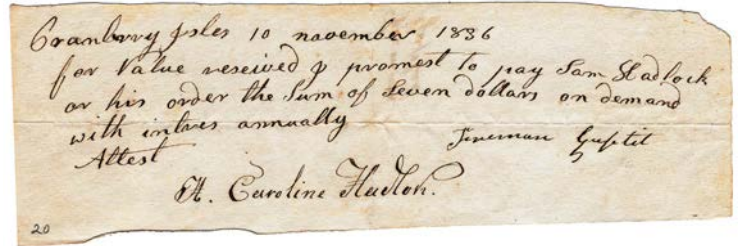 Cranberry Isles 10 november 1836
for Value reseived I promest to pay Sam Hadlock
or his order the Sum of Seven dollars on demand
with intres annually
Guptil
Attest
A. Caroline Hadlock.
20